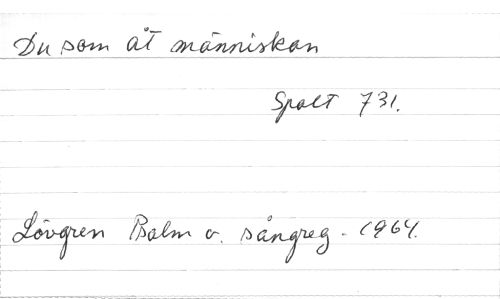 Du som åt människan
Spalt 731.
Lövgren Psalm o. sångreg. 1964.